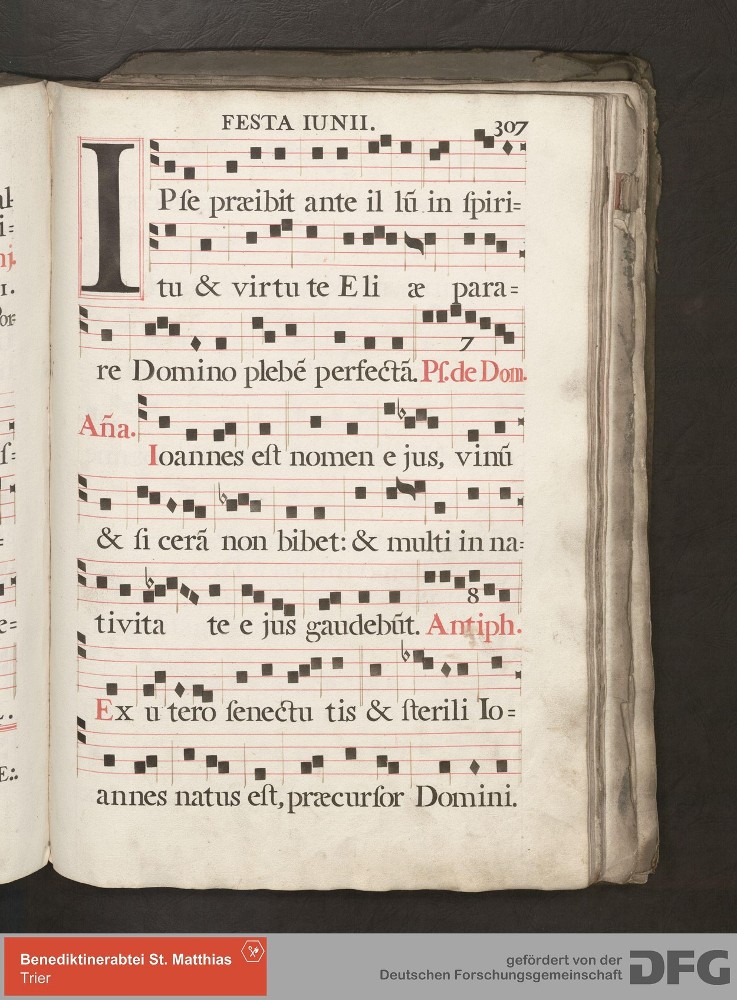 FESTA IUNII. 307
IPſe præibit ante il lũ in ſpiri=
tu & virtu te E li æ para=
7
re Domino plebẽ perfectã. Pſ. de Dom.
Añа. Ioannes eſt nomen e jus, vinũ
& ſi cerã non bibet: & multi in na=
8
tivita te e jus gaudebũt. Antiph.
Ex u tero ſenectu tis & ſterili Io=
annes natus eſt, præcurſor Domini.
Benediktinerabtei St. Matthias
Trier
gefördert von der
Deutschen Forschungsgemeinschaft
DFG